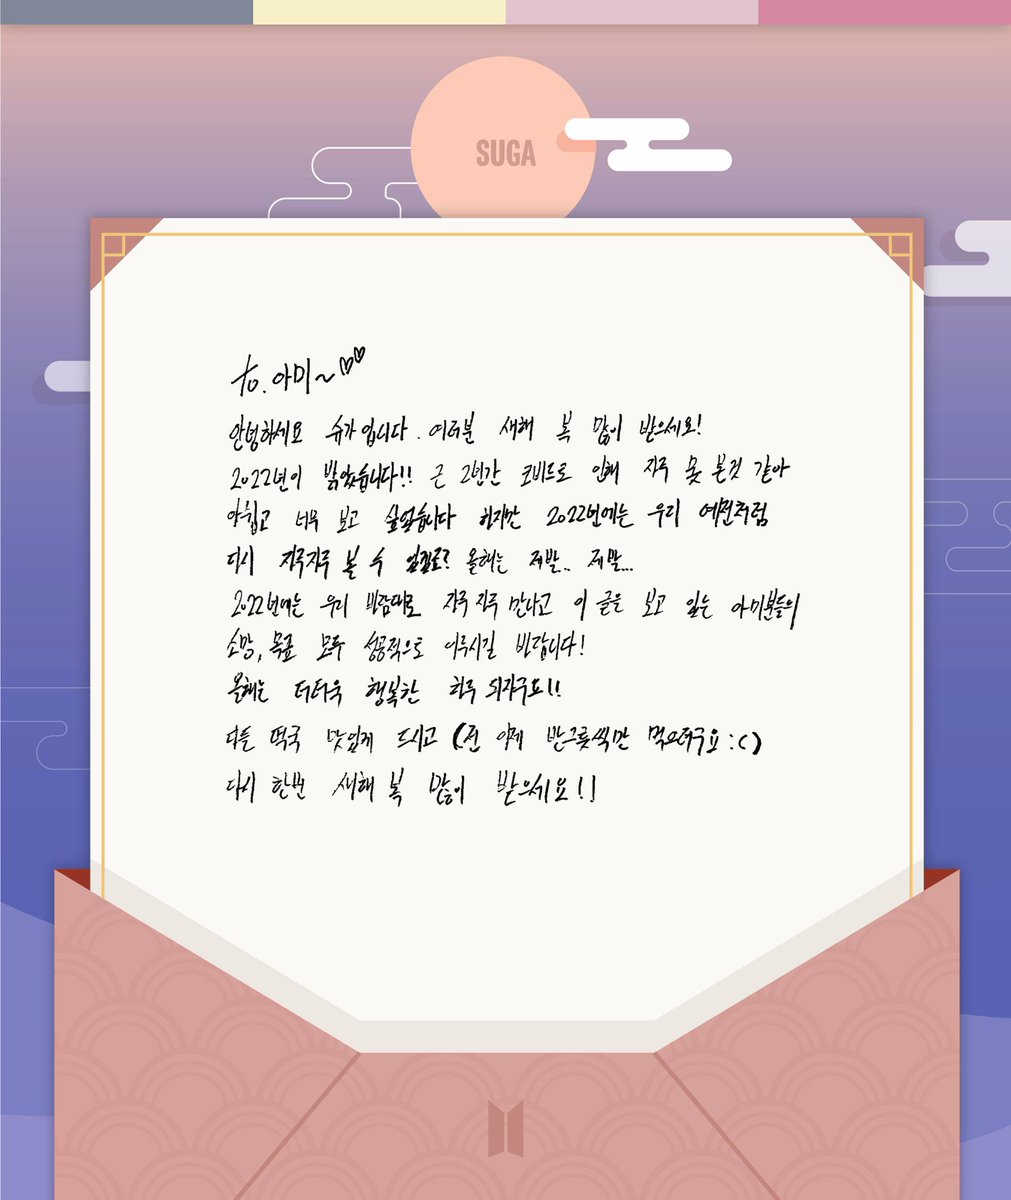 SUGA
to. 아미~♡♡
안녕하세요 슈가입니다. 여러분 새해 복 많이 받으세요!
2022년이 밝았습니다!! 근 2년간 코비드로 인해 자주 못 본것 같아
아쉽고 너무 보고 싶었습니다 하지만 2022년에는 우리 예전처럼
다시 자주자주 볼 수 있길? 올해는 제발.. 제발...
2022년에는 우리 바람대로 자주 자주 만나고 이 글을 보고 있는 아미분들의
소망, 목표 모두 성공적으로 이루시길 바랍니다!
올해는 더더욱 행복한 하루 되자구요!!
다들 떡국 맛있게 드시고 (전 이제 반그릇씩만 먹으려구요 :()
다시 한번 새해 복 많이 받으세요!!